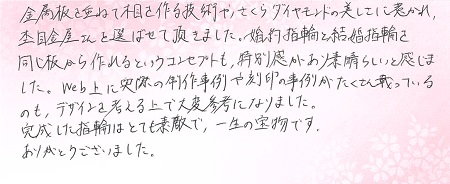 金属板を重ねて木目を作る技術や、さくらダイヤモンドの美しさに惹かれ、
杢目金屋さんを選ばせて頂きました。婚約指輪と結婚指輪を
同じ板から作れるというコンセプトも、特別感があり素晴らしいと感じま
した。Web上に実際の制作事例や刻印の事例がたくさん載っている
のも、デザインを考える上で大変参考になりました。
完成した指輪はとても素敵で、一生の宝物です。
ありがとうございました。